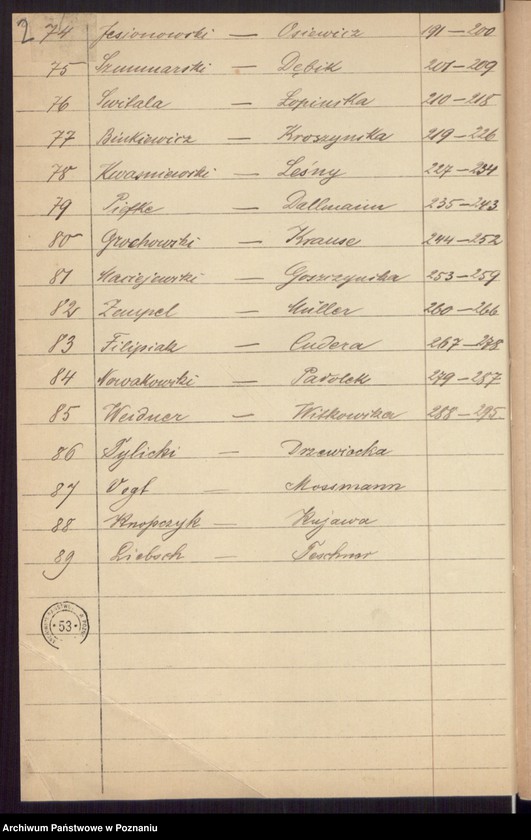 2
74 Jesionowski — Osiewicz 191 — 200
75 Szumnarski — Dębik 201 — 209
76 Świtala — Łopińska 210 — 218
77 Binkiewicz — Kroszyńska 219 — 226
78 Kwaśniewski — Leśny 227 — 234
79 Piofke — Dallmann 235 — 243
80 Grochowski — Krause 244 — 252
81 Maciejewski — Goszczyńska 253 — 259
82 Zempel — Müller 260 — 266
83 Filipiak — Cudera 267 — 278
84 Nowakowski — Padolek 279 — 287
85 Weidner — Witkowska 288 — 295
86 Tylicki — Drzewiecka
87 Vogt — Mossmann
88 Knopczyk — Kujawa
89 Liebsch — Teschner
53
Archiwum Państwowe w Poznaniu